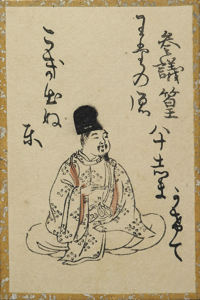 参議篁
わたの原
八十しま
かけて
こき出ぬ
と